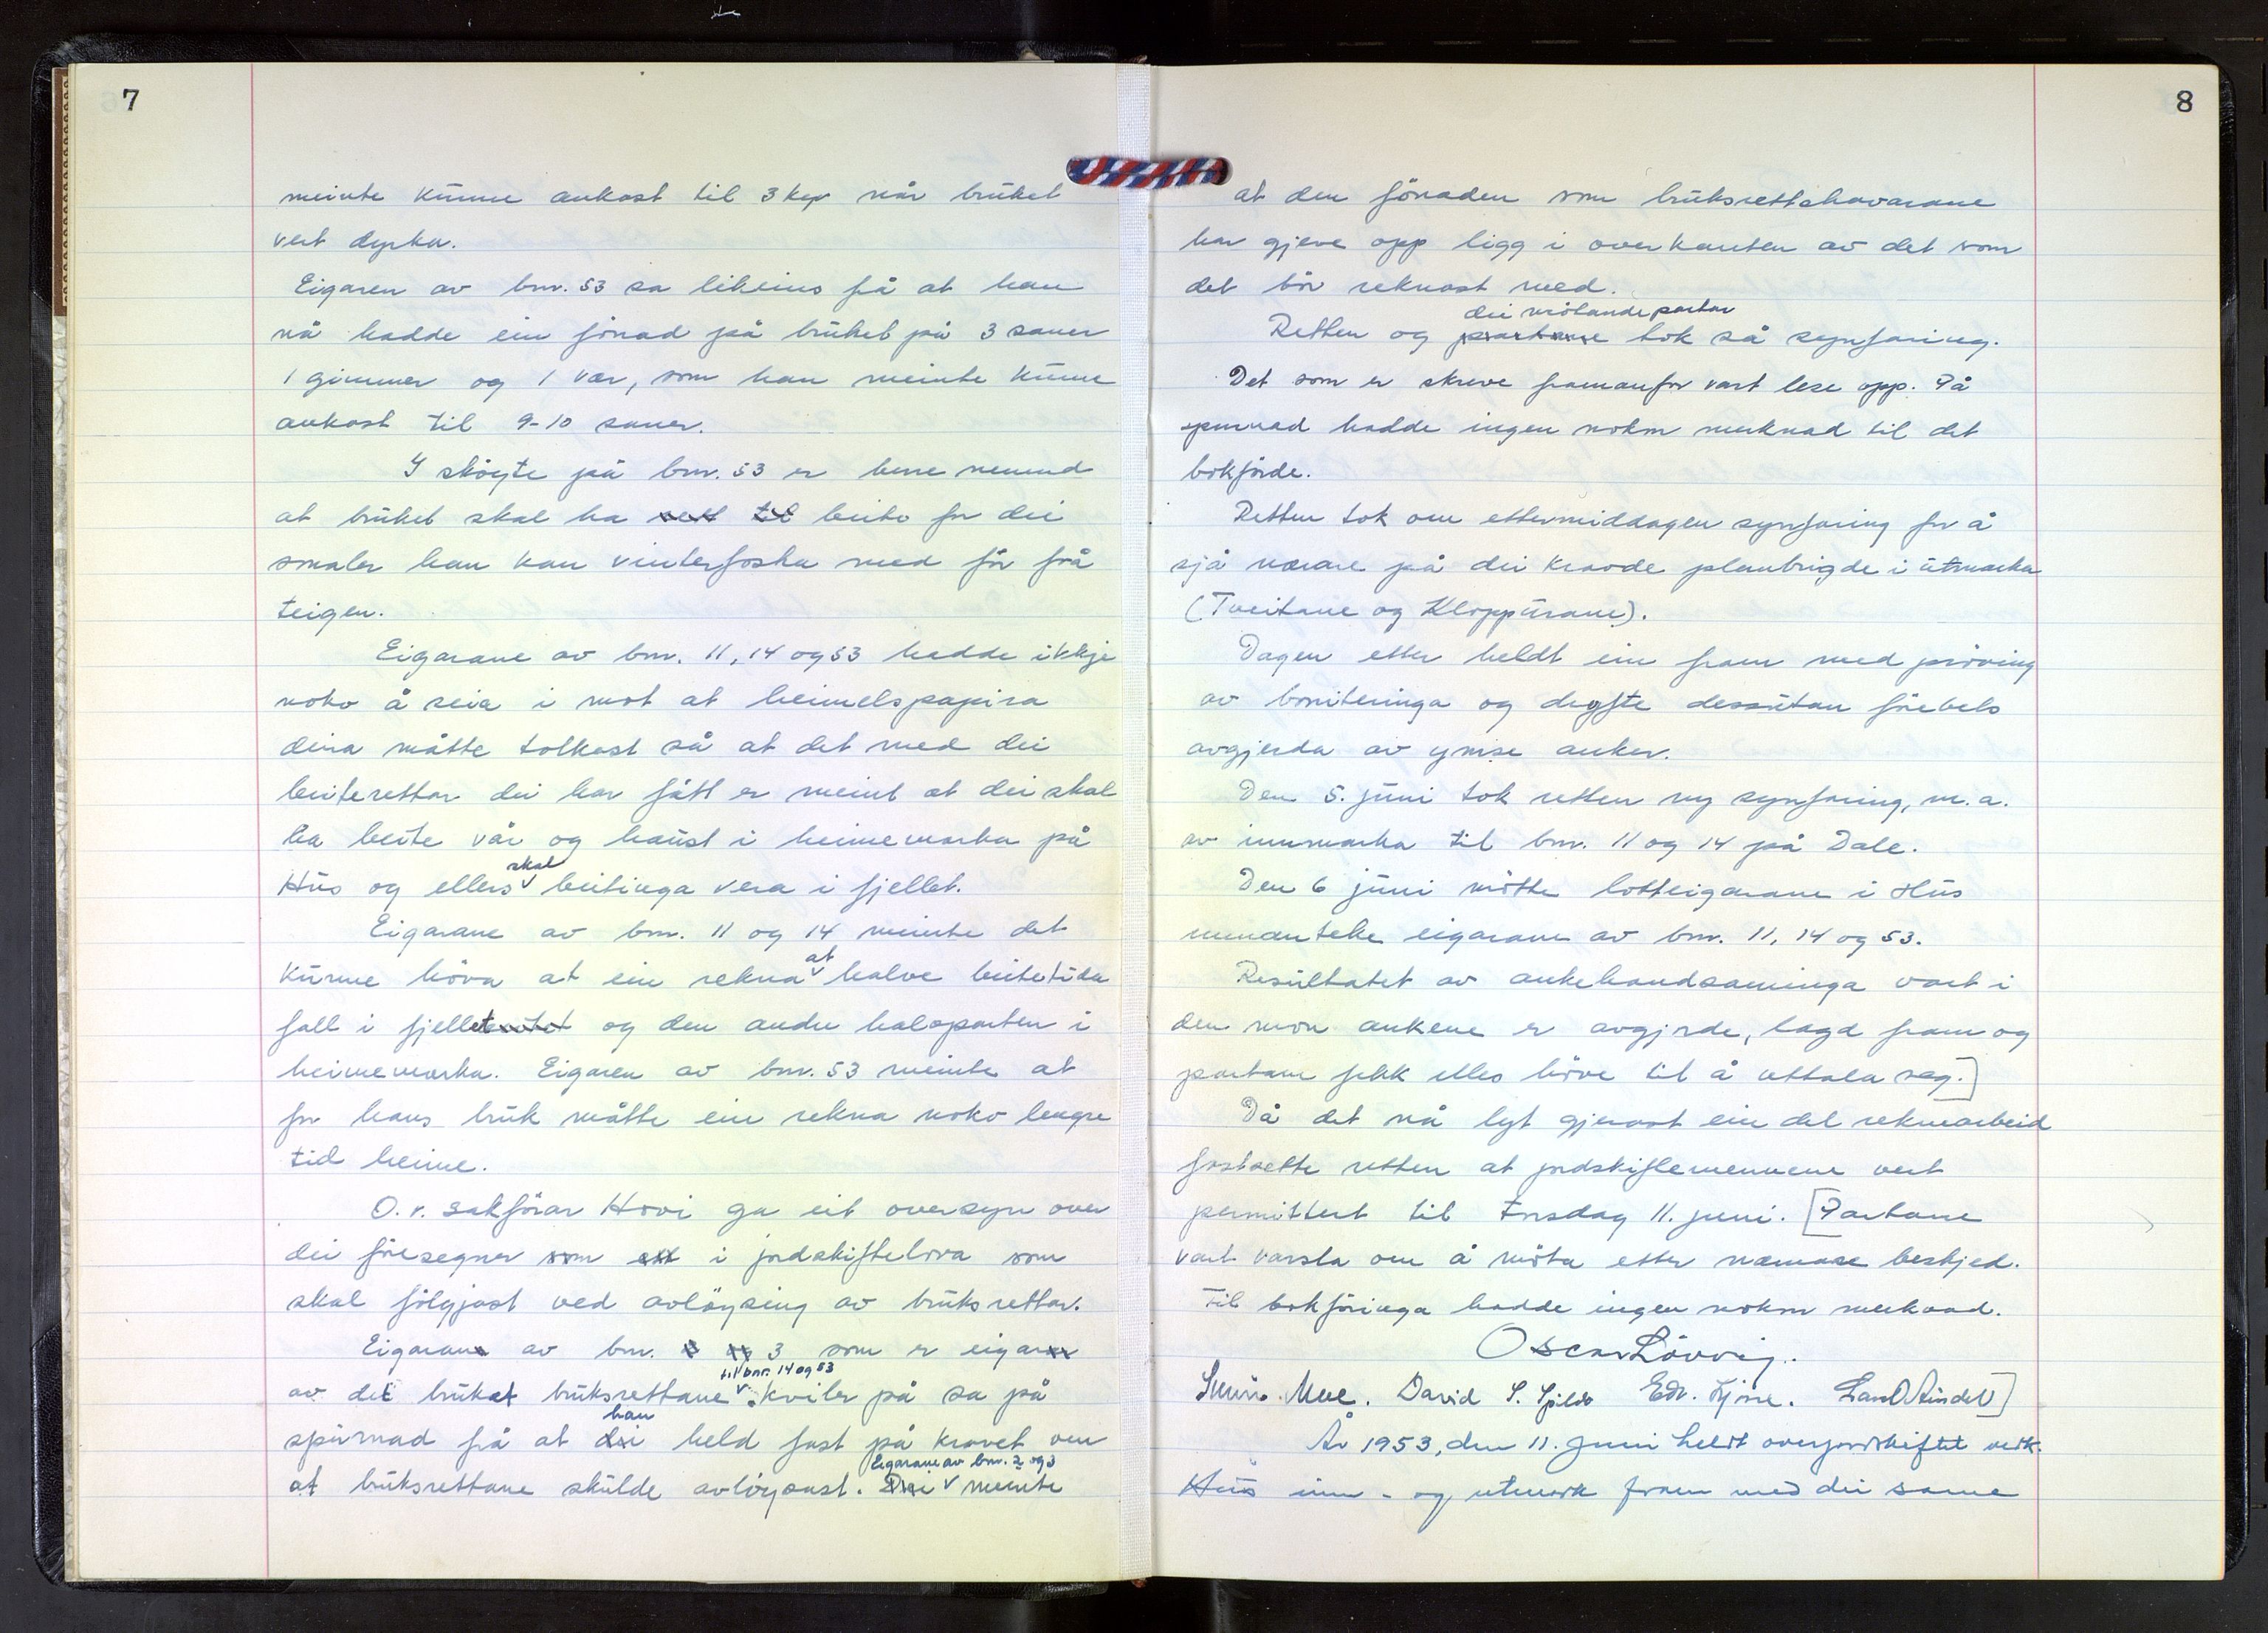 7
meinte kunne aukast til 3 kyr når bruket
vert dyrka.
Eigaren av bnr. 53 sa likeins frå at han
nå hadde ein fönad på bruket på 3 sauer
1 gimmer og 1 vær, som han meinte kunne
aukast til 9-10 sauer.
I sköyte på bnr. 53 er berre nemnd
at bruket skal ha rett til beite for dei
smaler han kan vinterfostra med fôr frå
teigen.
Eigarane av bnr. 11, 14 og 53 hadde ikkje
noko å seia i mot at heimelspapira
deira måtte tolkast så at det med dei
beiterettar dei har fått er meint at dei skal
ha beite vår og haust i heimemarka på
skal
Hus og ellers beitinga vera i fjellet.
Eigarane av bnr. 11 og 14 meinte det
at
kunne höva at ein rekna halve beitetida
fall i fjellet og den andre halvparten i
heimemarka. Eigaren av bnr. 53 meinte at
for hans bruk måtte ein rekna noko lengre
tid heime.
O. r. sakförar Hovi ga eit oversyn over
dei föresegner som i jordskiftelova som
skal fölgjast ved avlöysing av bruksrettar.
Eigarane av bnr. 3 som er eigar
til bnr. 14 og 53
av det bruket bruksrettane kviler på sa på
han
spurnad frå at dei held fast på kravet om
Eigarane av bnr. 2 og 3
at bruksrettane skulde avlöysast. Dei meinte
8
at den fönaden som bruksrettshavarane
har gjeve opp ligg i overkanten av det som
det bör reknast med.
dei mötande partar
Retten og partane tok så synfaring.
Det som er skreve framanfor vart lese opp. På
spurnad hadde ingen nokon merknad til det
bokförde.
Retten tok om ettermiddagen synfaring for å
sjå nærare på dei kravde planbrigde i utmarka
(Tveitane og Kloppurane).
Dagen etter heldt ein fram med pröving
av boniteringa og dröfte dessutan förebels
avgjerda av ymse anker.
Den 5. juni tok retten ny synfaring, m.a.
av innmarka til bnr. 11 og 14 på Dale.
Den 6 juni mötte lotteigarane i Hus
unnanteke eigarane av bnr. 11, 14 og 53.
Resultatet av ankehandsaminga vart i
den mon ankene er avgjorde, lagd fram og
partane fekk elles höve til å uttala seg.]
Då det nå lyt gjerast ein del reknearbeid
fastsette retten at jordskiftemennene vert
permittert til Torsdag 11. juni. [Partane
vart varsla om å möta etter nærmare beskjed.
Til bokföringa hadde ingen nokon merknad.
Oscar Lövvig.
Moe. David S. Spilde Edv.
År 1953, den 11. Juni heldt overjordskiftet vedk.
Hus inn- og utmark fram med dei same